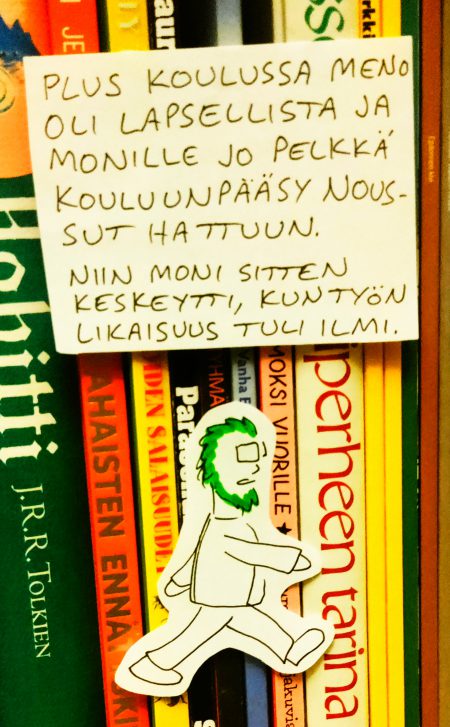 PLUS KOULUSSA MENO
OLI LAPSELLISTA JA
MONILLE JO PELKKÄ
KOULUUNPÄÄSY NOUS-
SUT HATTUUN.
NIIN MONI SITTEN
KESKEYTTI, KUN TYÖN
LIKAISUUS TULI ILMI.
Hobitti
J.R.R. TOLKIEN
AHAISTEN ENNÄ
IDEN SALAISUUDE
MOKSI VUORILLE
iperheen tarina